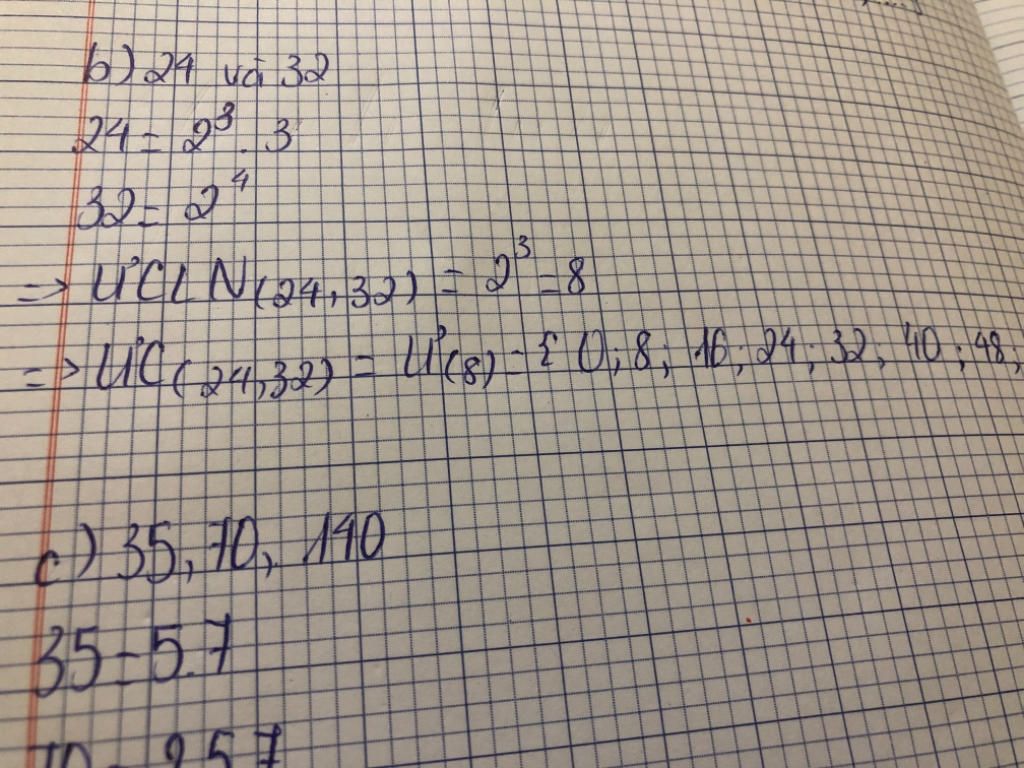 b) 24 và 32
24 = 2³ . 3
32 = 2⁴
=> ƯCLN(24,32) = 2³ = 8
=> ƯC(24,32) = Ư(8) = { 0; 8; 16; 24; 32; 40; 48;
c) 35, 70, 140
35 = 5.7
70 = 2.5.7